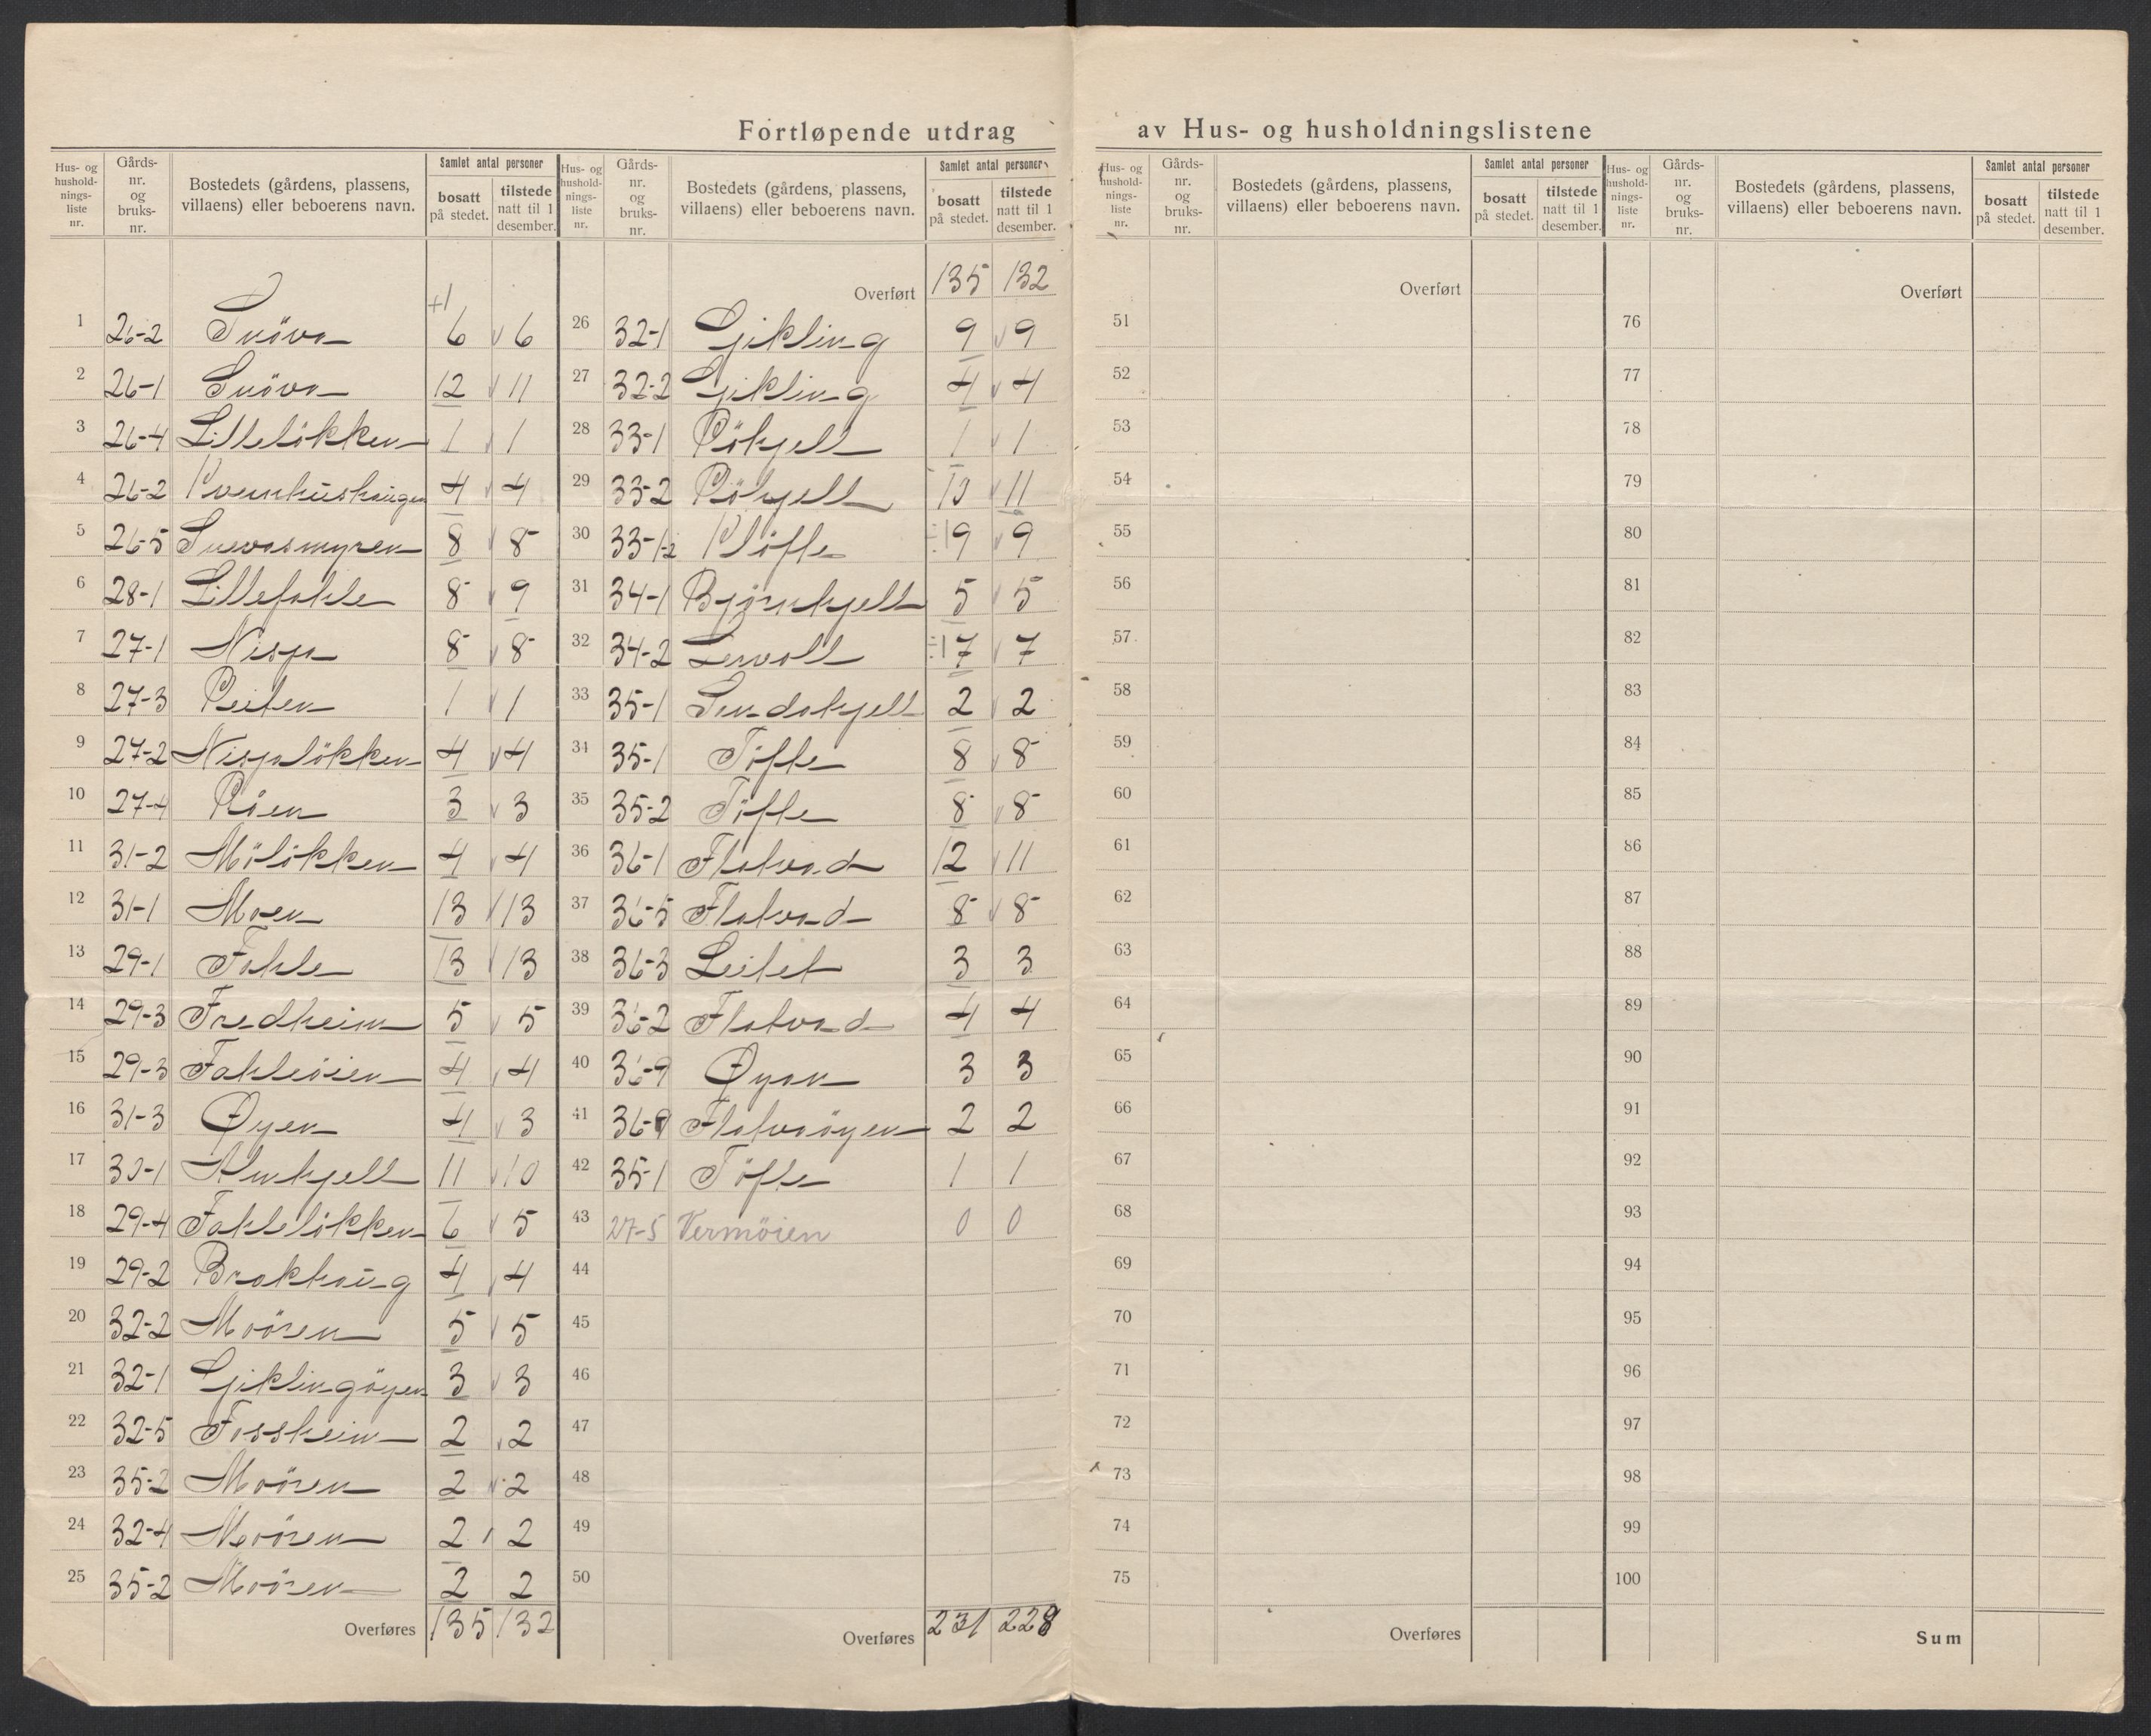 Fortløpende utdrag av Hus- og husholdningslistene
Hus- og husholdnings- liste nr. | Gårds- nr. og bruks- nr. | Bostedets (gårdens, plassens, villaens) eller beboerens navn. | Samlet antal personer bosatt på stedet. | tilstede natt til 1 desember.
+1
1 26-2 Snöva 6 6
2 26-1 Snöva 12 11
3 26-4 Lillelökken 1 1
4 26-2 Kvernhushaugen 4 4
5 26-5 Snevasmyren 8 8
6 28-1 Lillefahle 8 9
7 27-1 Nisja 8 8
8 27-3 Reiten 1 1
9 27-2 Nisjalökken 4 4
10 27-4 Röen 3 3
11 31-2 Mölökken 4 4
12 31-1 Moen 13 13
13 29-1 Fahle 13 13
14 29-3 Fredheim 5 5
15 29-3 Fahleöien 4 4
16 31-3 Øyen 4 3
17 30-1 Almkjell 11 10
18 29-4 Fahlelökken 6 5
19 29-2 Brakhaug 4 4
20 32-2 Moören 5 5
21 32-1 Gjiklingöyen 3 3
22 32-5 Fossheim 2 2
23 35-2 Moören 2 2
24 32-4 Moören 2 2
25 35-2 Moören 2 2
Overføres 135 132
Hus- og husholdnings- liste nr. | Gårds- nr. og bruks- nr. | Bostedets (gårdens, plassens, villaens) eller beboerens navn. | Samlet antal personer bosatt på stedet. | tilstede natt til 1 desember.
Overført 135 132
26 32-1 Gjikling 9 9
27 32-2 Gjikling 4 4
28 33-1 Rökjell 1 1
29 33-2 Rökjell 10 11
30 33-1-2 Klöfte ÷1 9 9
31 34-1 Bjørnkjell 5 5
32 34-2 Lervoll ÷1 7 7
33 35-1 Sendakjell 2 2
34 35-1 Töfte 8 8
35 35-2 Töfte 8 8
36 36-1 Flatvad 12 11
37 36-5 Flatvad 8 8
38 36-3 Leitet 3 3
39 36-2 Flatvad 4 4
40 36-9 Øyan 3 3
41 36-9 Flatvaöyen 2 2
42 35-1 Töfte 1 1
43 27-5 Vermöien 0 0
44
45
46
47
48
49
50
Overføres 231 228
Hus- og husholdnings- liste nr. | Gårds- nr. og bruks- nr. | Bostedets (gårdens, plassens, villaens) eller beboerens navn. | Samlet antal personer bosatt på stedet. | tilstede natt til 1 desember.
Overført
51
52
53
54
55
56
57
58
59
60
61
62
63
64
65
66
67
68
69
70
71
72
73
74
75
Overføres
Hus- og husholdnings- liste nr. | Gårds- nr. og bruks- nr. | Bostedets (gårdens, plassens, villaens) eller beboerens navn. | Samlet antal personer bosatt på stedet. | tilstede natt til 1 desember.
Overført
76
77
78
79
80
81
82
83
84
85
86
87
88
89
90
91
92
93
94
95
96
97
98
99
100
Sum